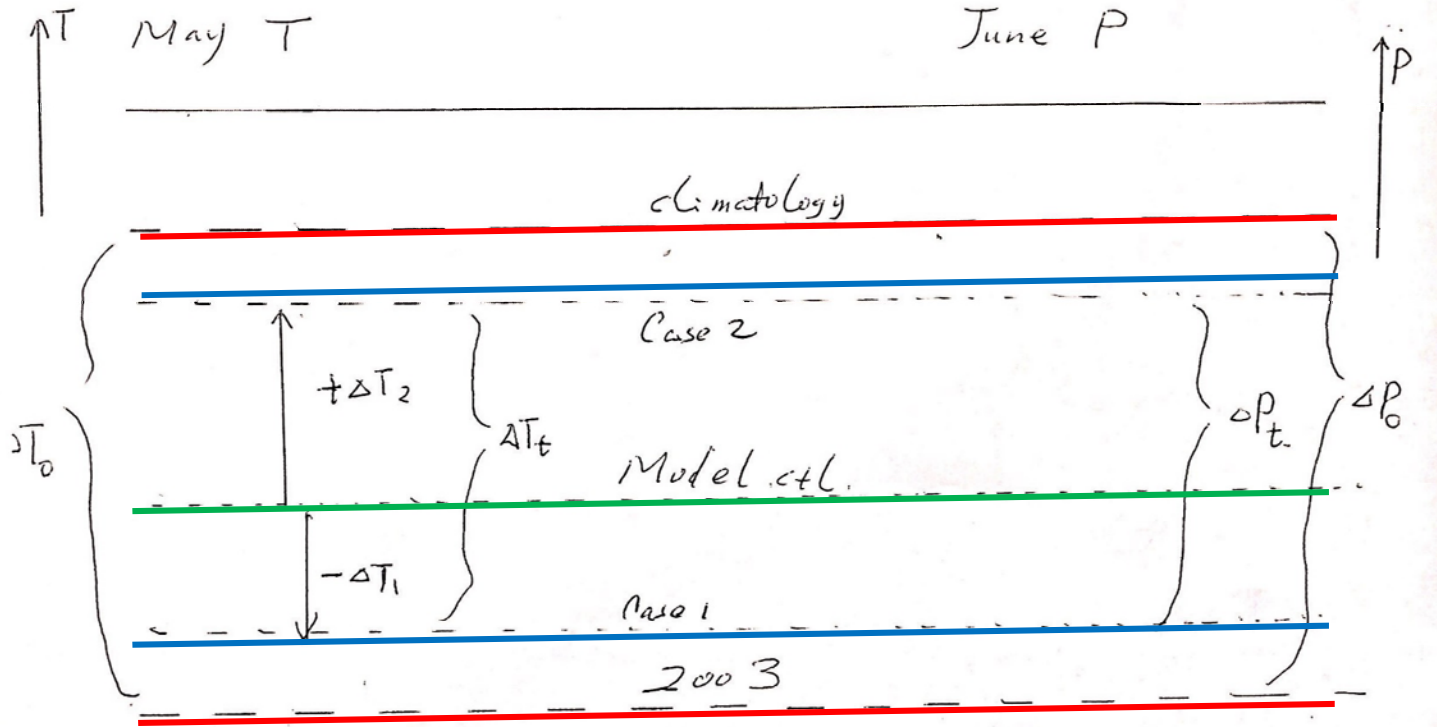 T May T June P P
climatology
Case 2
+ΔT₂
ΔT₀ ΔTt ΔPt ΔP₀
Model ctl.
-ΔT₁
Case 1
2003